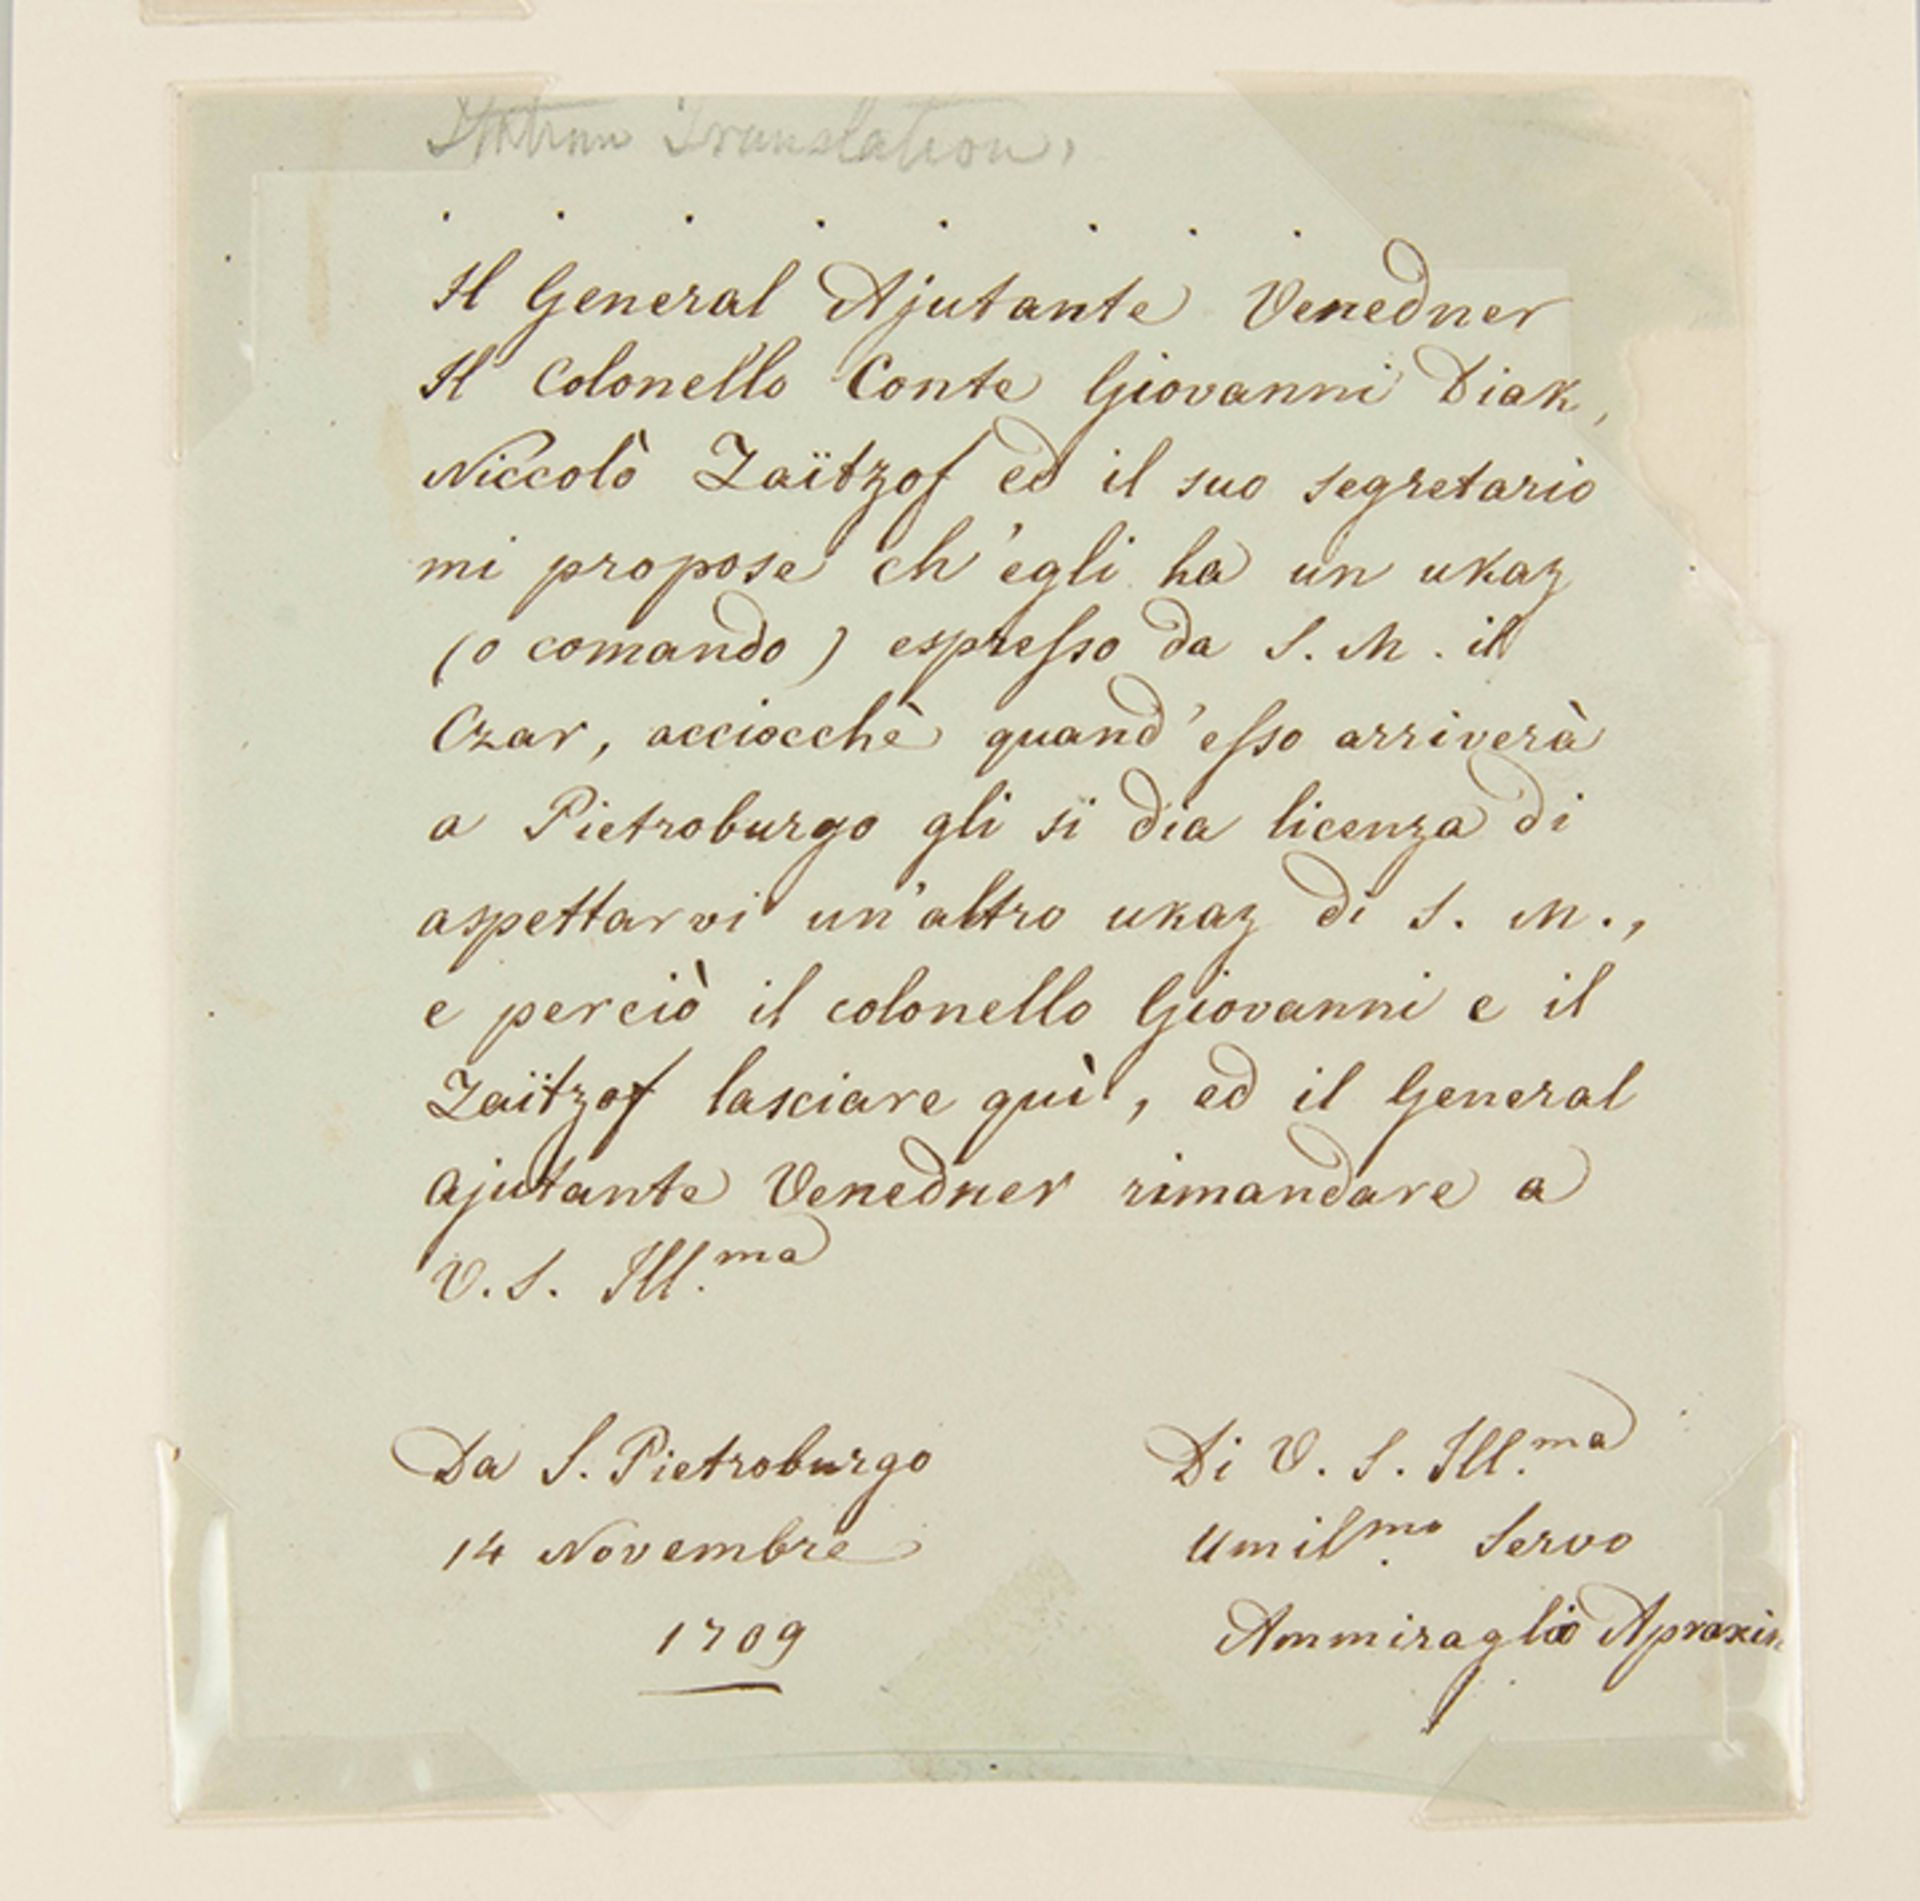 Italian Translation,
. . . . . . . .
Il General Ajutante Venedner
Il Colonello Conte Giovanni Diak,
Niccolò Zaïtzof ed il suo segretario
mi propose ch'egli ha un ukaz
(o comando) espresso da S. M. il
Czar, acciocchè quand'esso arriverà
a Pietroburgo gli si dia licenza di
aspettarvi un'altro ukaz di S. M.,
e perciò il colonello Giovanni e il
Zaïtzof lasciare quì, ed il General
Ajutante Venedner rimandare a
V. S. Ill.ma
Da S. Pietroburgo
14 Novembre
1709
Di V. S. Ill.ma
Umil.mo Servo
Ammiraglio Apraxin